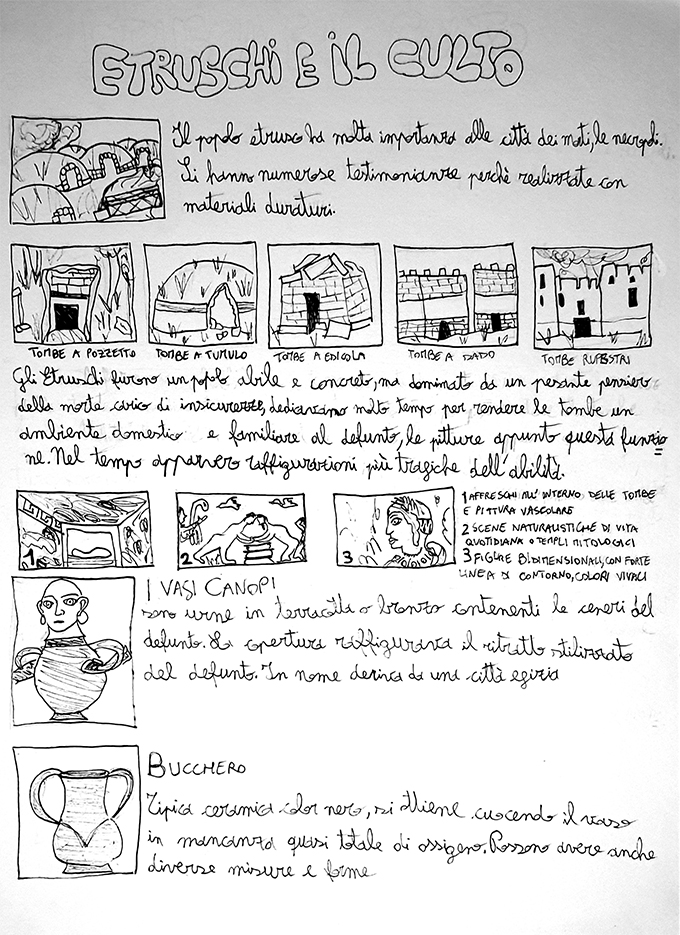 ETRUSCHI E IL CULTO
Il popolo etrusco ha molta importanza alle città dei moti, le necropoli.
Si hanno numerose testimonianze perchè realizzate con
materiali duraturi.
TOMBE A POZZETTO
TOMBE A TUMULO
TOMBE A EDICOLA
TOMBE A DADO
TOMBE RUPESTRI
Gli Etruschi furono un popolo abile e concreto, ma dominato da un pesante pensiero
della morte carico di insicurezze, dedicavano molto tempo per rendere le tombe un
ambiente domestico e familiare al defunto, le pitture appunto questa funzio
ne. Nel tempo apparvero raffigurazioni più tragiche dell'abilità.
1
2
3
1 AFFRESCHI ALL'INTERNO DELLE TOMBE
E PITTURA VASCOLARE
2 SCENE NATURALISTICHE DI VITA
QUOTIDIANA O TEMPLI MITOLOGICI
3 FIGURE BIDIMENSIONALI, CON FORTE
LINEA DI CONTORNO, COLORI VIVACI
I VASI CANOPI
sono urne in terracotta o bronzo contenenti le ceneri del
defunto. La apertura raffigurava il ritratto stilizzato
del defunto. In nome deriva da una città egizia
BUCCHERO
Tipica ceramica color nero, si ottiene cuocendo il vaso
in mancanza quasi totale di ossigeno. Possono avere anche
diverse misure e forme